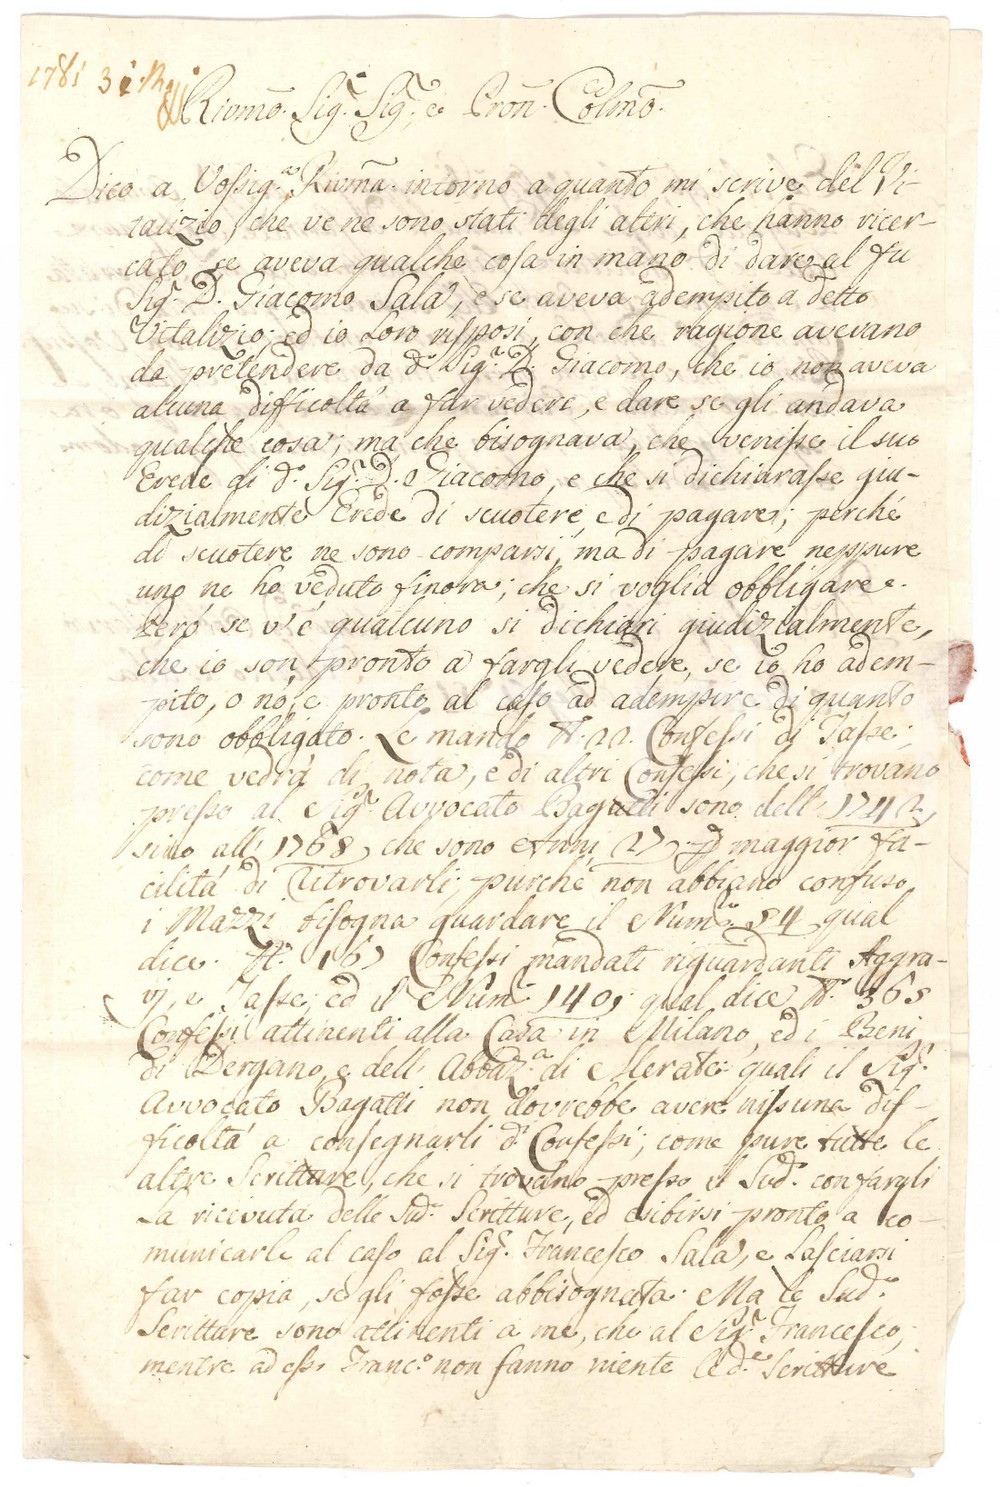 1781 3
Riv̄mo. Sig.r Sig.r, e Pron̄. Colmo.
Dico a Vossig.a Riv̄ma. intorno a quanto mi scrive del Vi-
talizio, che ve ne sono stati degli altri, che hanno ricer-
cato se aveva qualche cosa in mano di dare al fu
Sig.r D. Giacomo Sala, e se aveva adempito a detto
Vitalizio; ed io Loro risposi, con che ragione avevano
da pretendere da d.o Sig.r D. Giacomo, che io non aveva
alcuna difficoltá a far vedere, e dare se gli andava
qualche cosa; ma che bisognava, che venisse il suo
Erede di d.o Sig.r D. Giacomo, e che si dichiarasse giu-
dizialmente Erede di scuotere, e di pagare; perché
di scuotere ne sono comparsi, ma di pagare neppure
uno ne ho veduto finora; che si voglia obbligare.
Peró se v'é qualcuno si dichiari giudizialmente,
che io son pronto a fargli vedere, se io ho adem-
pito, o nó, e pronto al caso ad adempire di quanto
sono obbligato. Le mando N. 22. Confessi di Tasse;
come vedrá di nota, e di altri Confessi, che si trovano
presso al Sig.r Avvocato Bagatti sono dell' 1742,
sino all' 1768, che sono Anni 27, p maggior fa-
cilitá di Titrovarli, purché non abbiano confuso
i Mazzi bisogna guardare il Num.o 84 qual
dice. N. 16, Confessi mandati riguardanti Aggra-
vj, e Tasse; ed il Num.o 140, qual dice N. 365
Confessi attinenti alla Casa in Milano, ed i Beni
di Dergano, e dell' Abbaz.a di Merate: quali il Sig.r
Avvocato Bagatti non dovrebbe avere nissuna dif-
ficoltá a consegnarli d.i Confessi; come pure tutte le
altre Scritture, che si trovano presso il Sud.o con fargli
La ricevuta delle Sud.e Scritture, ed esibirsi pronto a co-
municarle al caso al Sig.r Francesco Sala, e Lasciarsi
far copia, se gli fosse abbisognata. Ma le Sud.e
Scritture sono attinenti a me, che al Sig.r Francesco;
mentre ad esso Franc.o non fanno niente le d.e Scritture